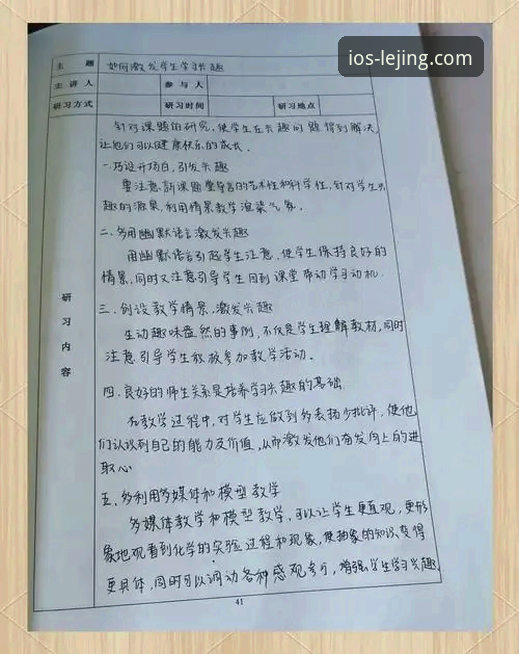 ios-lejing.com
主 题 如何激发学生学习兴趣
主 讲 人 参 与 人
研习方式 研习时间 研习地点
针对课题的研究,使学生在兴趣问题得到解决
让他们可以健康快乐的成长.
一.巧设开场白,引发兴趣
要注意新课题导言的艺术性和科学性,针对学生兴
趣的源泉,利用情景教学渲染气氛.
二.多用幽默语言激发兴趣
用幽默语言引起学生注意,使学生保持良好的
情景,同时又注意引导学生回到课堂带动学习动机.
三.创设教学情景,激发兴趣
生动趣味盎然的事例,不仅是学生理解教材,同时
注意引导学生积极参加教学活动.
四.良好的师生关系是培养学习兴趣的基础
在教学过程中,对学生应做到多表扬少批评,使他
们认识到自己的能力及价值,从而激发他们奋发向上的进
取心
五.多利用多媒体和模型教学
多媒体教学和模型教学,可以让学生更直观,更形
象地观看到化学的实验过程和现象,使抽象的知识变得
更具体,同时可以调动各种感观参与,增强学生学习兴趣
研习内容
41